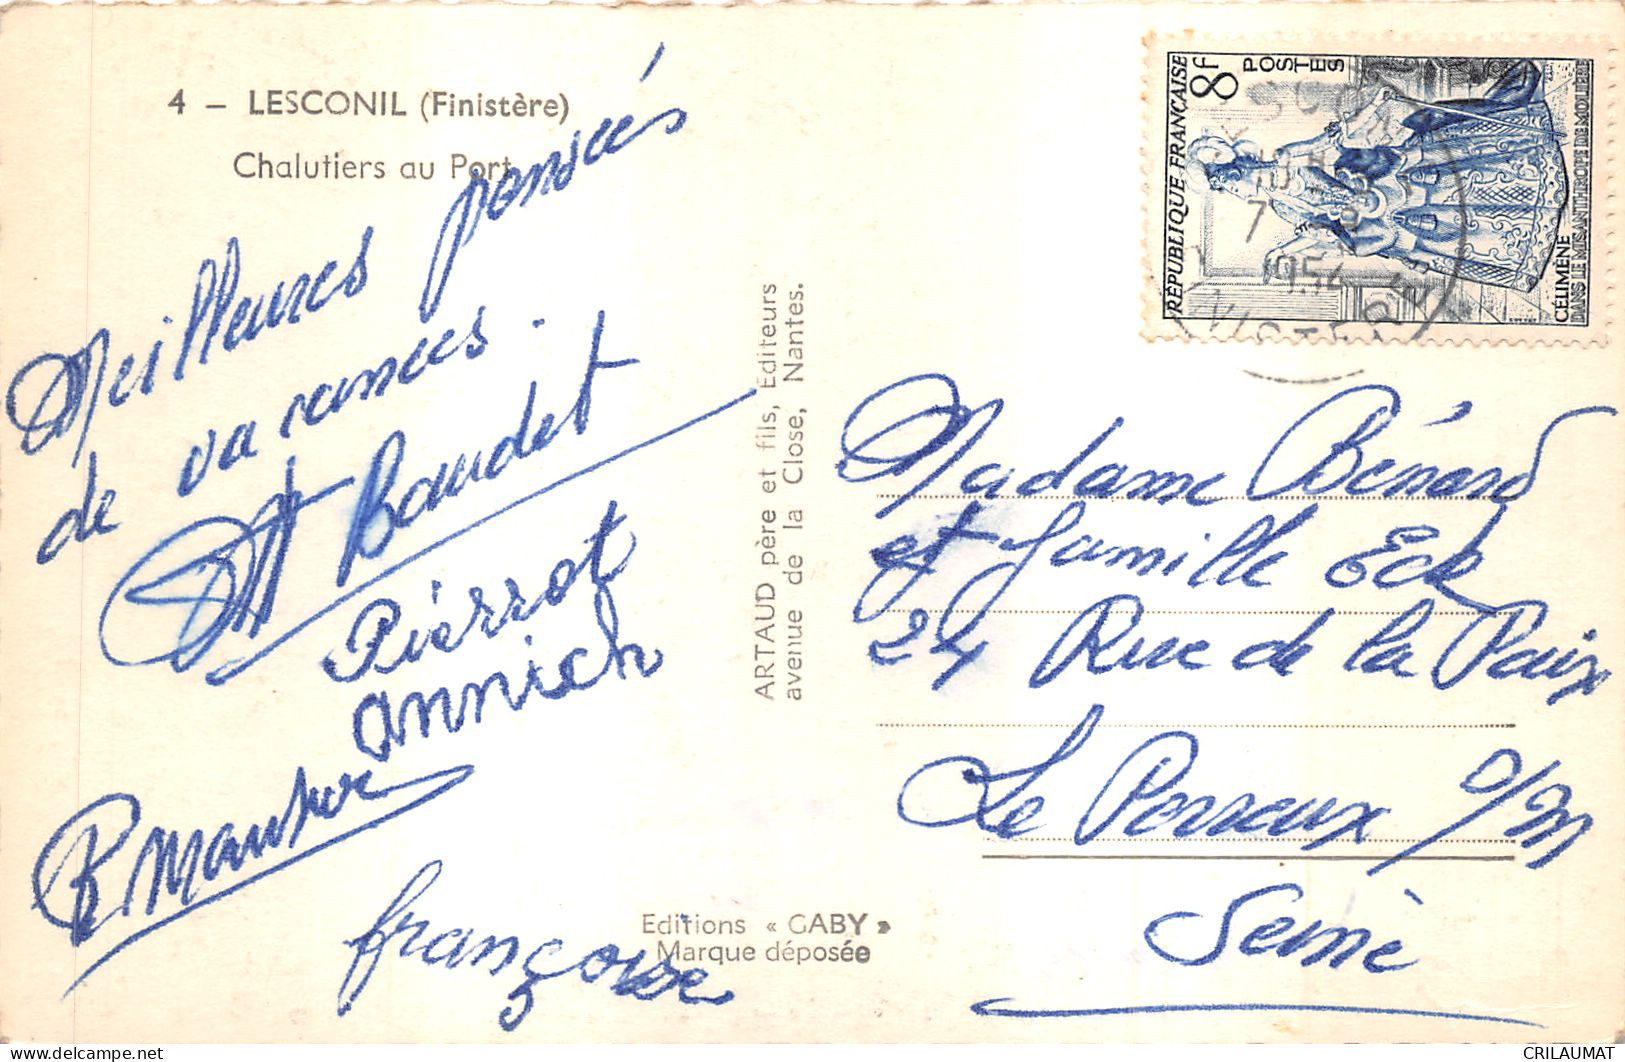 4 – LESCONIL (Finistère)
Chalutiers au Port
Meilleures pensées
de vacances.
Baudet
Pierrot
annick
françoise
ARTAUD père et fils, Editeurs
avenue de la Close, Nantes.
Editions « GABY »
Marque déposée
RÉPUBLIQUE FRANÇAISE
8F
POSTES
CÉLIMÈNE
DANS LE MISANTHROPE DE MOLIÈRE
7
1954
Madame Bénard
et famille Eck
24 Rue de la Paix
Le Perreux s/M
Seine
CRILAUMAT